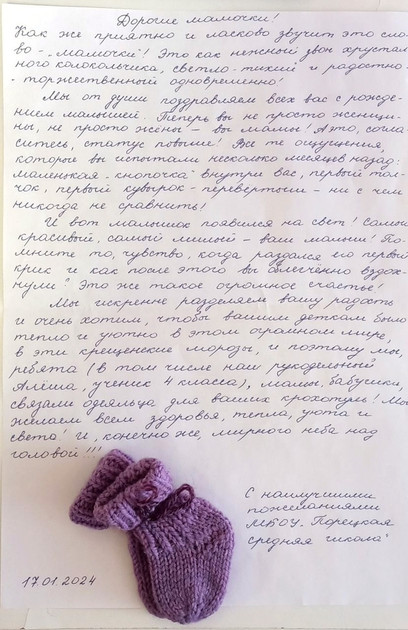 Дорогие мамочки!
Как же приятно и ласково звучит это сло-
во - „мамочки"! Это как нежный звон хрусталь-
ного колокольчика, светло-тихий и радостно-
- торжественный одновременно!
Мы от души поздравляем всех вас с рожде-
нием малышей. Теперь вы не просто женщи-
ны, не просто жены - вы мамы! А это, согла-
ситесь, статус повыше! Все те ощущения,
которые вы испытали несколько месяцев назад:
маленькая „кнопочка" внутри вас, первый тол-
чок, первый кувырок-перевертыш - ни с чем
никогда не сравнить!
И вот малышок появился на свет! Самый
красивый, самый милый - ваш малыш! По-
мните то, чувство, когда раздался его первый
крик и как после этого вы облегченно вздох-
нули? Это же такое огромное счастье!
Мы искренне разделяем вашу радость
и очень хотим, чтобы вашим деткам было
тепло и уютно в этом огромном мире,
в эти крещенские морозы, и поэтому мы,
ребята (в том числе наш рукодельный
Алёша, ученик 4 класса), мамы, бабушки,
связали одеяльца для ваших крохотуль! Мы
желаем всем здоровья, тепла, уюта и
света! И, конечно же, мирного неба над
головой!!!
С наилучшими
пожеланиями
МКОУ „Порецкая
средняя школа"
17.01.2024